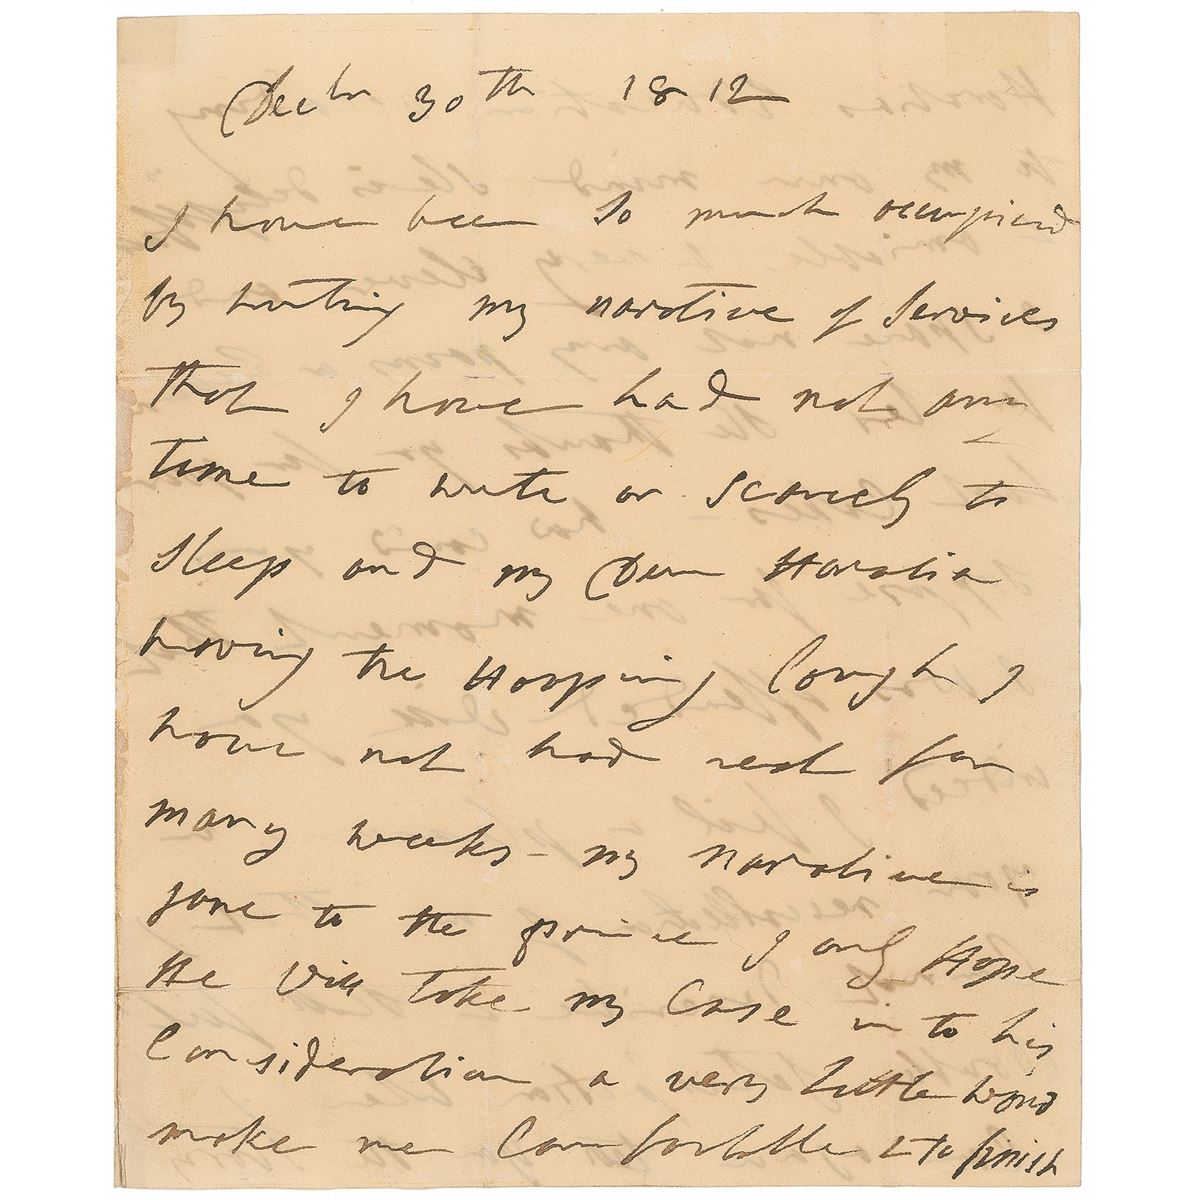 Decbr 30th 1812
I have been so much occupied
by writing my narative of Services
that I have had not any
time to write or scarcely to
sleep and my Dear Horatia
having the Hooping Cough I
have not had rest for
many weeks - my narative is
gone to the prince I only Hope
He will take my Case in to his
Consideration a very little would
make me Comfortable & to finish